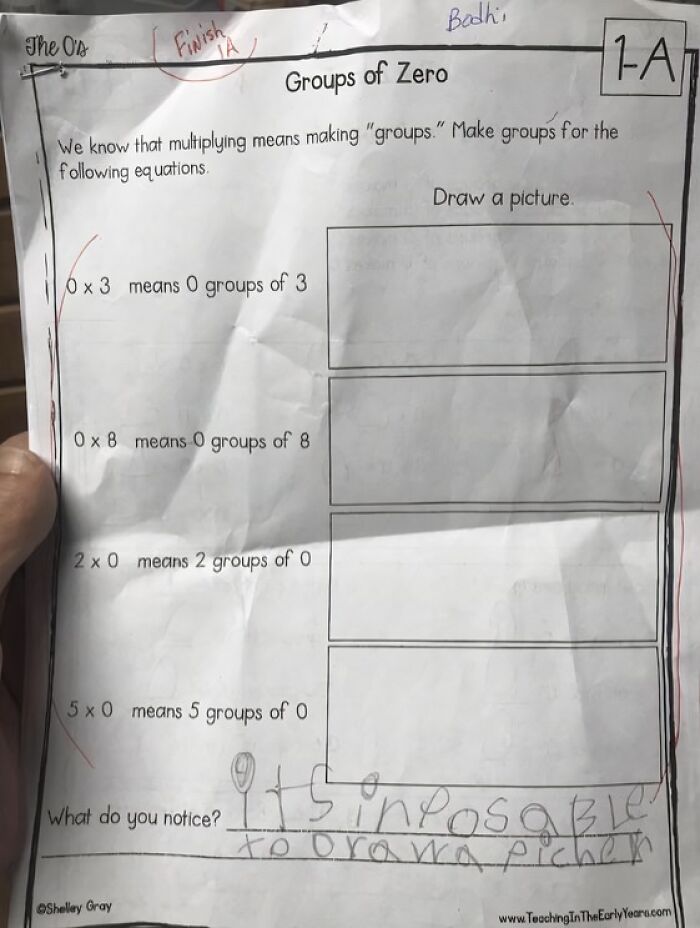 Bodhi
The 0's
Finish
1A
1-A
Groups of Zero
We know that multiplying means making "groups." Make groups for the
following equations.
Draw a picture.
0 x 3 means 0 groups of 3
0 x 8 means 0 groups of 8
2 x 0 means 2 groups of 0
5 x 0 means 5 groups of 0
What do you notice? its inposaBle
to Drawa picher
©Shelley Gray
www.TeachingInTheEarlyYears.com